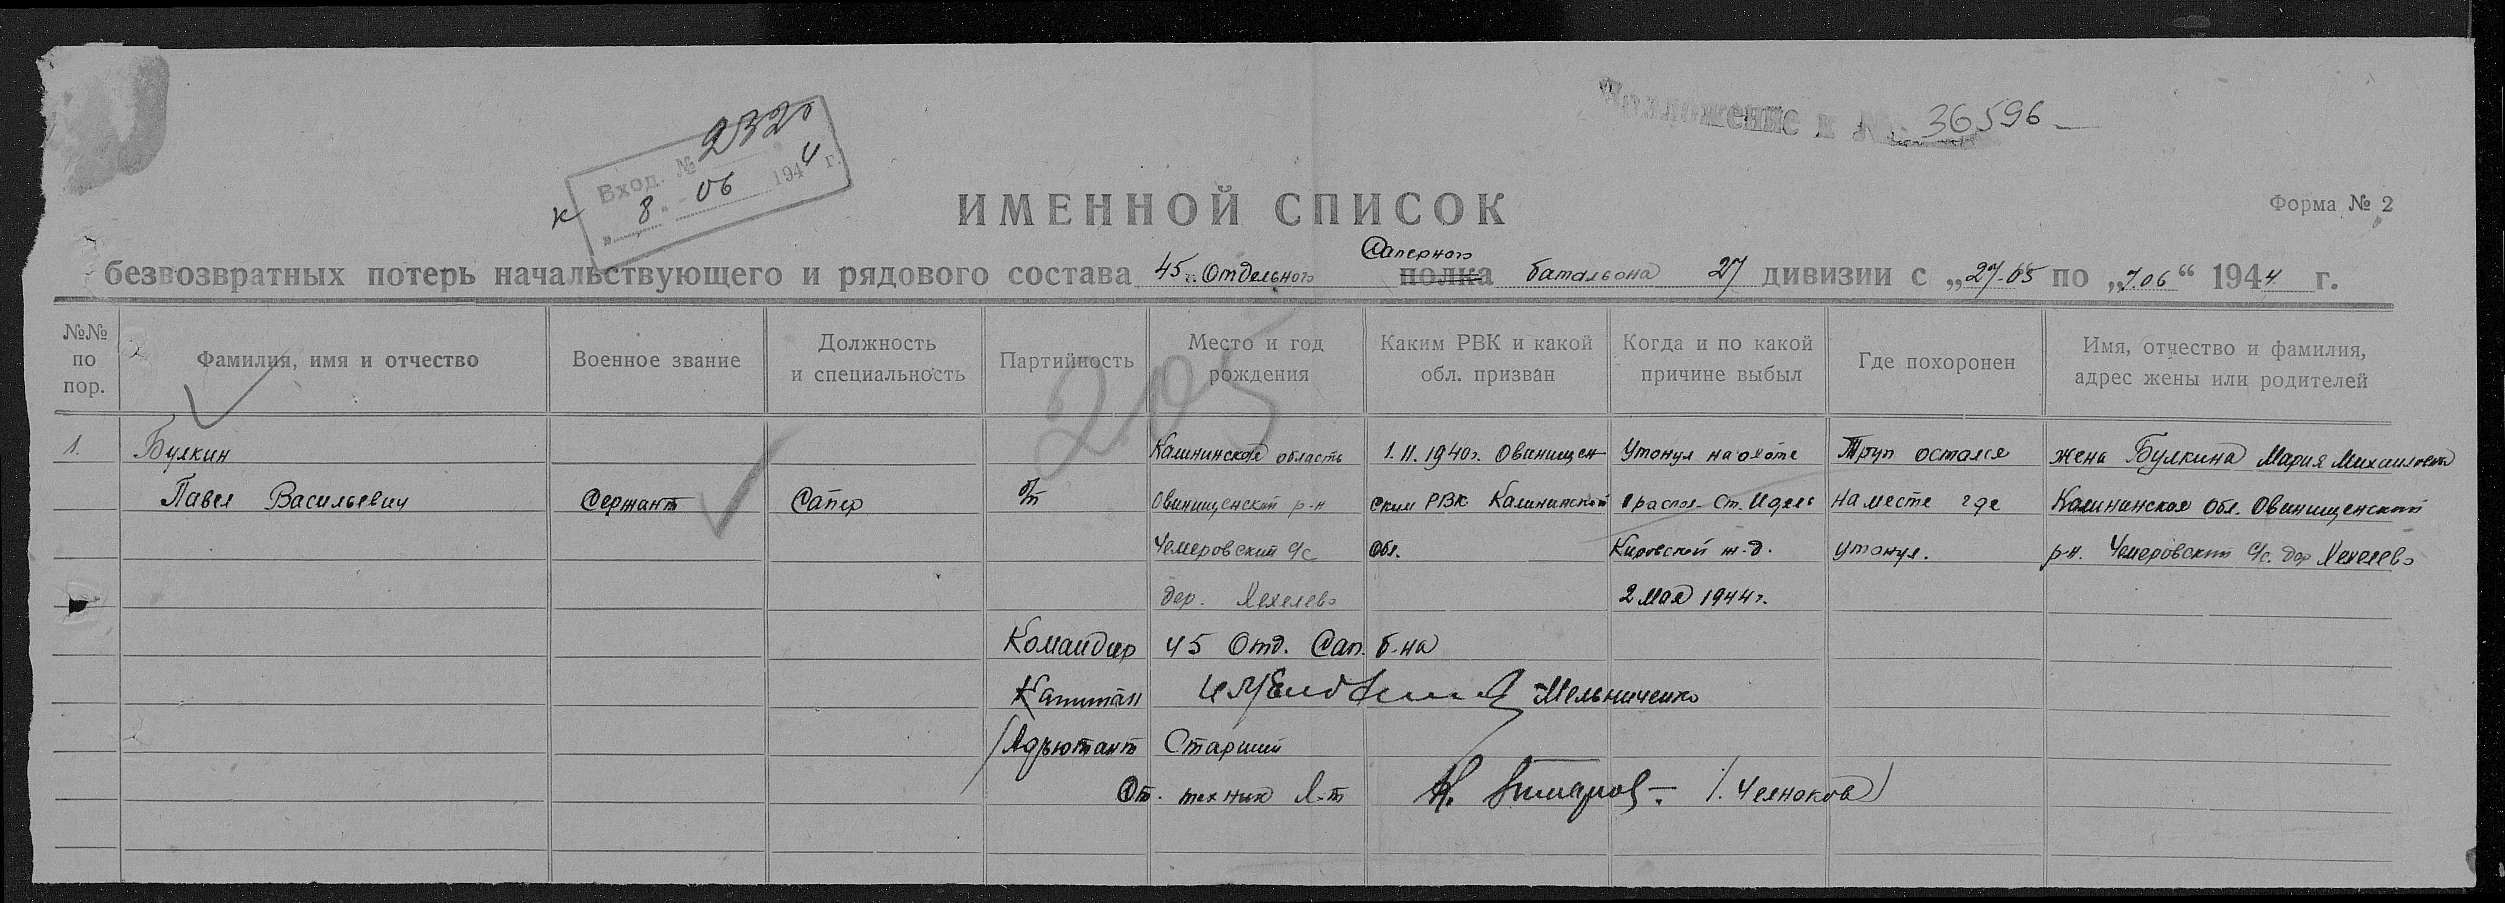 Приложение к № 36596
Вход. № 2320
к „8“ 06 1944 г.
ИМЕННОЙ СПИСОК
Форма № 2
Саперного
безвозвратных потерь начальствующего и рядового состава 45 Отдельного полка батальона 27 дивизии с „27-05 по „7.06“ 1944 г.
№№ по пор.
Фамилия, имя и отчество
Военное звание
Должность и специальность
Партийность
Место и год рождения
Каким РВК и какой обл. призван
Когда и по какой причине выбыл
Где похоронен
Имя, отчество и фамилия, адрес жены или родителей
205
1. Булкин Калининская область 1.11.1940г. Овинищен- Утонул на охоте Труп остался жена Булкина Мария Михайловна
Павел Васильевич Сержант Сапер б/п Овинищенский р-н ским РВК Калининской Ст. Идель на месте где Калининская обл. Овинищенский
Чемеровский с/с обл. Кировской ж.д. утонул. р-н. Чемеровский с/с. дер
дер. 2 мая 1944г.
Командир 45 Отд. Сап. б-на
Капитан Мельниченко
Адъютант Старший
Ст. техник л-т /Челноков/